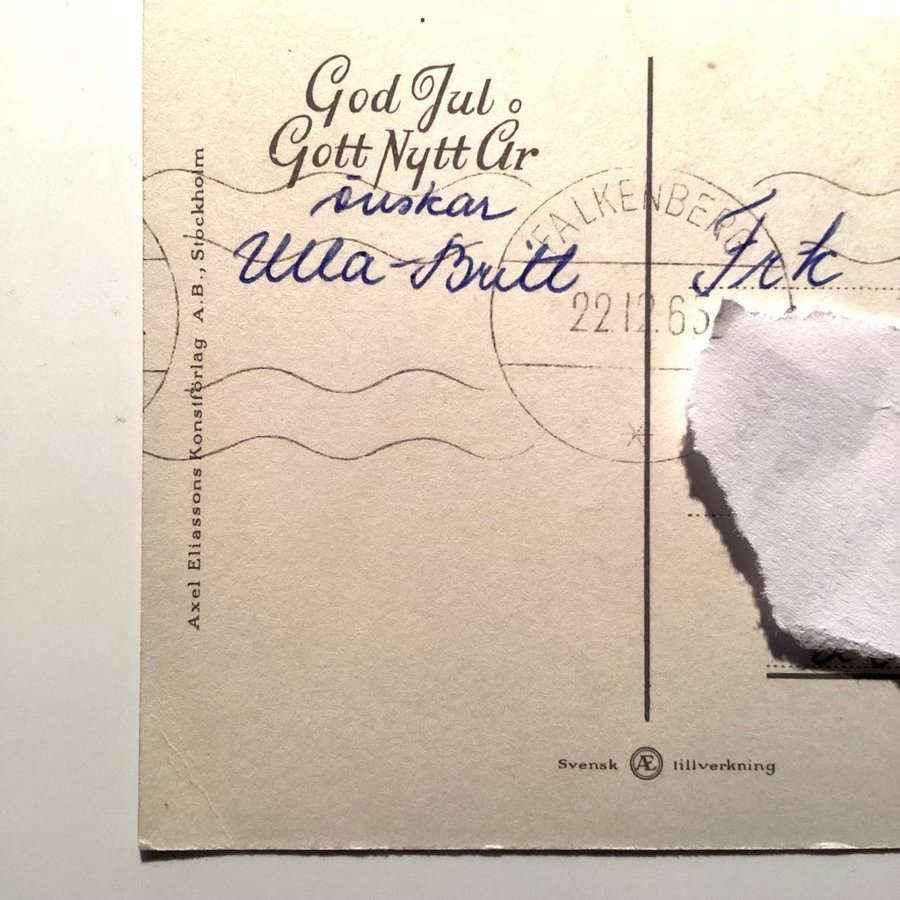 God Jul
Gott Nytt År
önskar
Ulla-Britt
Axel Eliassons Konstförlag A.B., Stockholm
FALKENBERG
22.12.63
Frk
Svensk Æ tillverkning